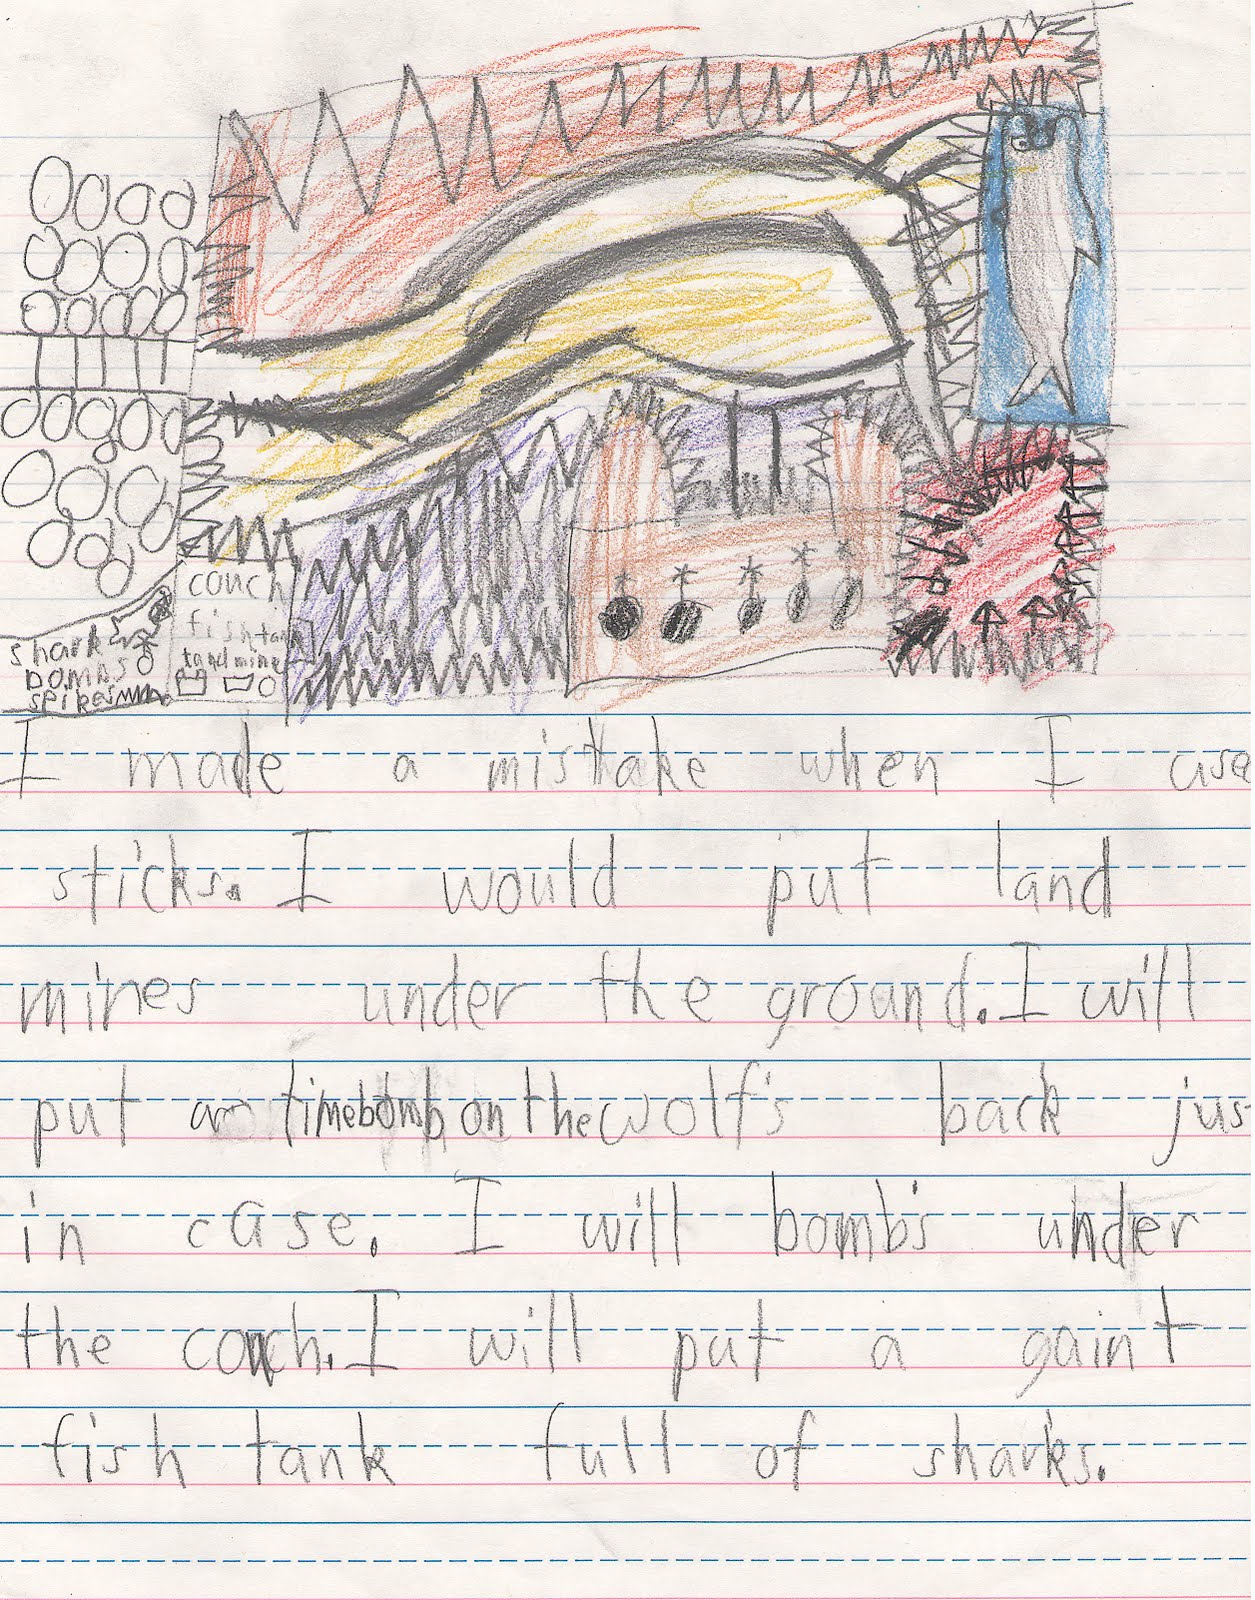 couch
fish tank
land mine
shark
bombs
spikes
I made a mistake when I use
sticks. I would put land
mines under the ground. I will
put a timebomb on the wolf's back jus
in case. I will bombs under
the couch. I will put a gaint
fish tank full of sharks.